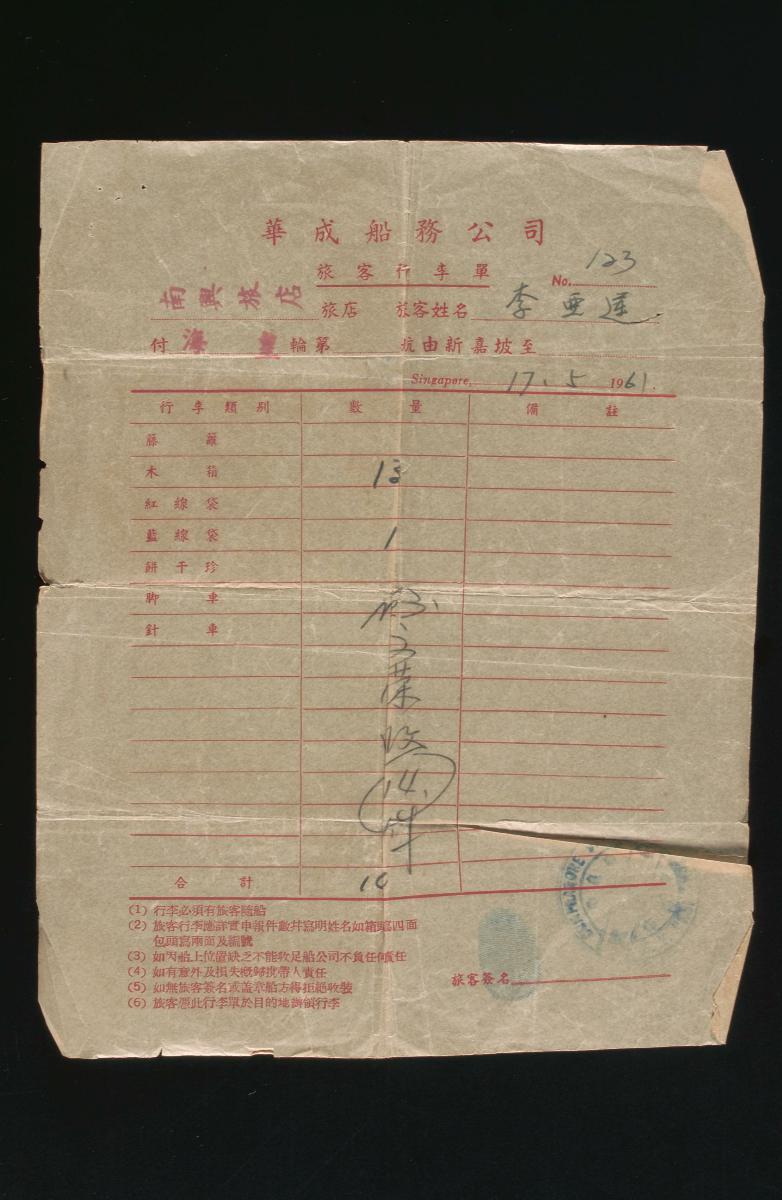 華成船務公司
旅客行李單
No. 123
南興旅店 旅店 旅客姓名 李亜蓮
付 海皇 輪第 航由新嘉坡至
Singapore, 17.5 1961.
行李類別 數量 備註
藤籮
木箱 13
紅線袋
藍線袋 1
餅干珍
脚車
針車
文荣收
14
件
合計 14
(1) 行李必須有旅客隨船
(2) 旅客行李應詳實申報件數并寫明姓名如箱頭寫四面
包頭寫兩面及編號
(3) 如因船上位置缺乏不能收足船公司不負任何責任
(4) 如有意外及損失概歸携帶人責任
(5) 如無旅客簽名或盖章船方得拒絕收裝
(6) 旅客憑此行李單於目的地領行李
旅客簽名
SINGAPORE